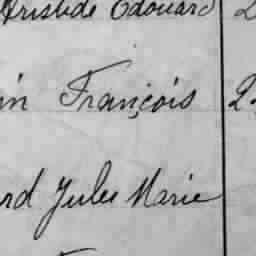 Aristide Edouard
in François 2
rd Jules Marie